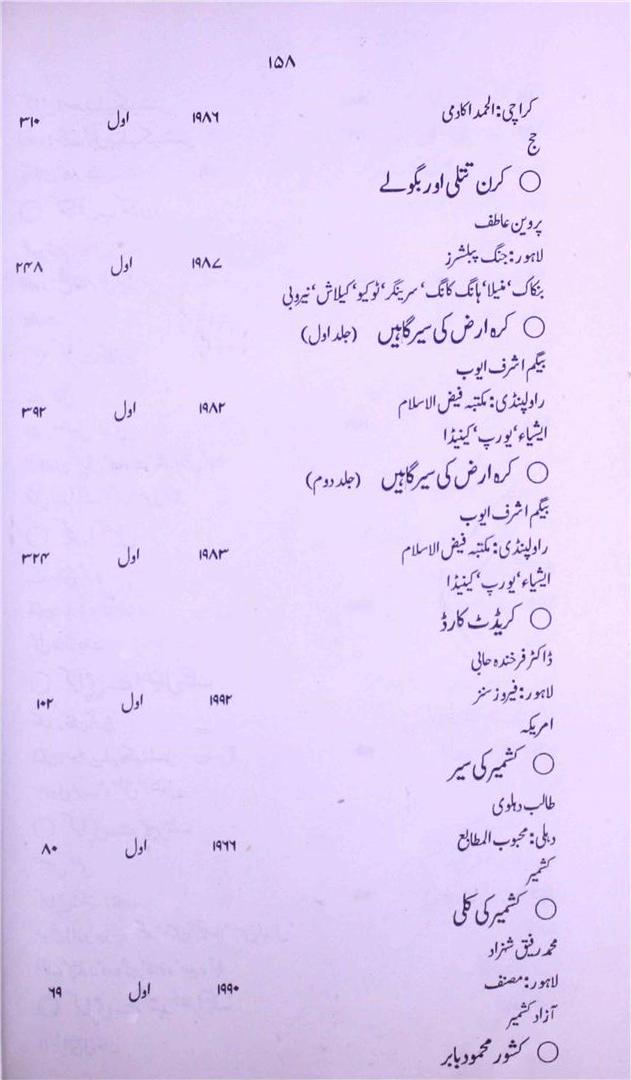 ۱۵۸
کراچی: الحمد اکادمی ۱۹۸۶ اول ۳۱۰
حج
○ کرن تتلی اور بگولے
پروین عاطف
لاہور: جنگ پبلشرز ۱۹۸۷ اول ۲۴۸
بنکاک، منیلا، ہانگ کانگ، سرینگر، ٹوکیو، کیلاش، نیروبی
○ کرہ ارض کی سیر گاہیں (جلد اول)
بیگم اشرف ایوب
راولپنڈی: مکتبہ فیض الاسلام ۱۹۸۲ اول ۳۹۲
ایشیاء، یورپ، کینیڈا
○ کرہ ارض کی سیر گاہیں (جلد دوم)
بیگم اشرف ایوب
راولپنڈی: مکتبہ فیض الاسلام ۱۹۸۳ اول ۳۲۴
ایشیاء، یورپ، کینیڈا
○ کریڈٹ کارڈ
ڈاکٹر فرخندہ حابی
لاہور: فیروز سنز ۱۹۹۲ اول ۱۰۲
امریکہ
○ کشمیر کی سیر
طالب دہلوی
دہلی: محبوب المطابع ۱۹۶۶ اول ۸۰
کشمیر
○ کشمیر کی کلی
محمد رفیق شہزاد
لاہور: مصنف ۱۹۹۰ اول ۶۹
آزاد کشمیر
○ کشور محمود بابر